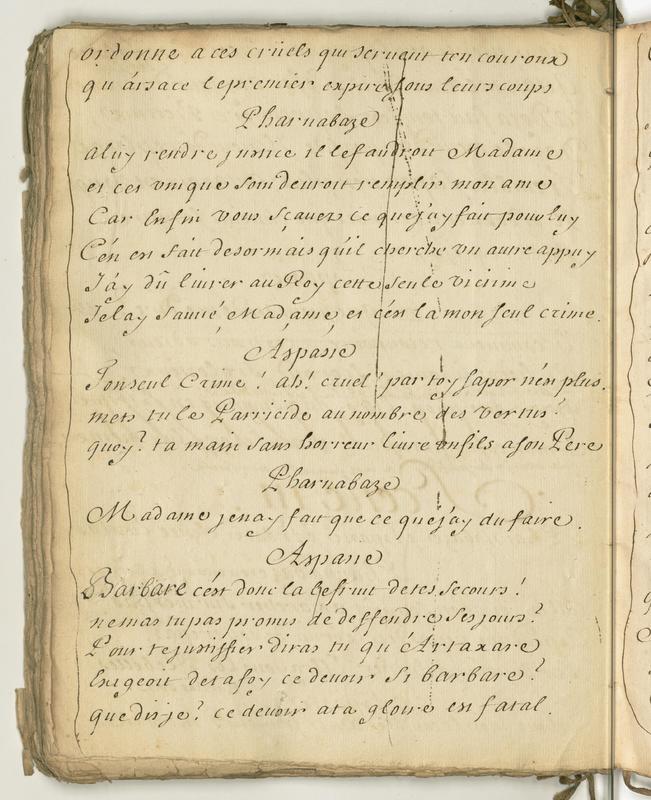 ordonne a ces cruels qui servent ton couroux
qu'arsace le premier expire sous leurs coups
Pharnabaze
a luy rendre justice il le faudroit Madame
et ces unique soin devroit remplir mon ame
Car Enfin vous sçavez ce que j'ay fait pour luy
C'én en fait desormais qu'il cherche un autre appuy
J'ay dû livrer au Roy cette seule victime
Je l'ay sauvé Madame et c'ést la mon seul crime.
Aspasie
Ton seul Crime! ah! cruel! par toy sapor n'én plus.
mets tu le Parricide au nombre des vertus?
quoy? ta main sans horreur livre un fils a son Pere
Pharnabaze
Madame je n'ay fait que ce que j'ay du faire.
Aspasie
Barbare c'ést donc la le fruit de tes secours!
ne m'as tu pas promis de deffendre ses jours?
Pour te justiffier diras tu qu'Artaxare
Exigeoit de ta foy ce devoir si barbare?
que dis je? ce devoir a ta gloire est fatal.